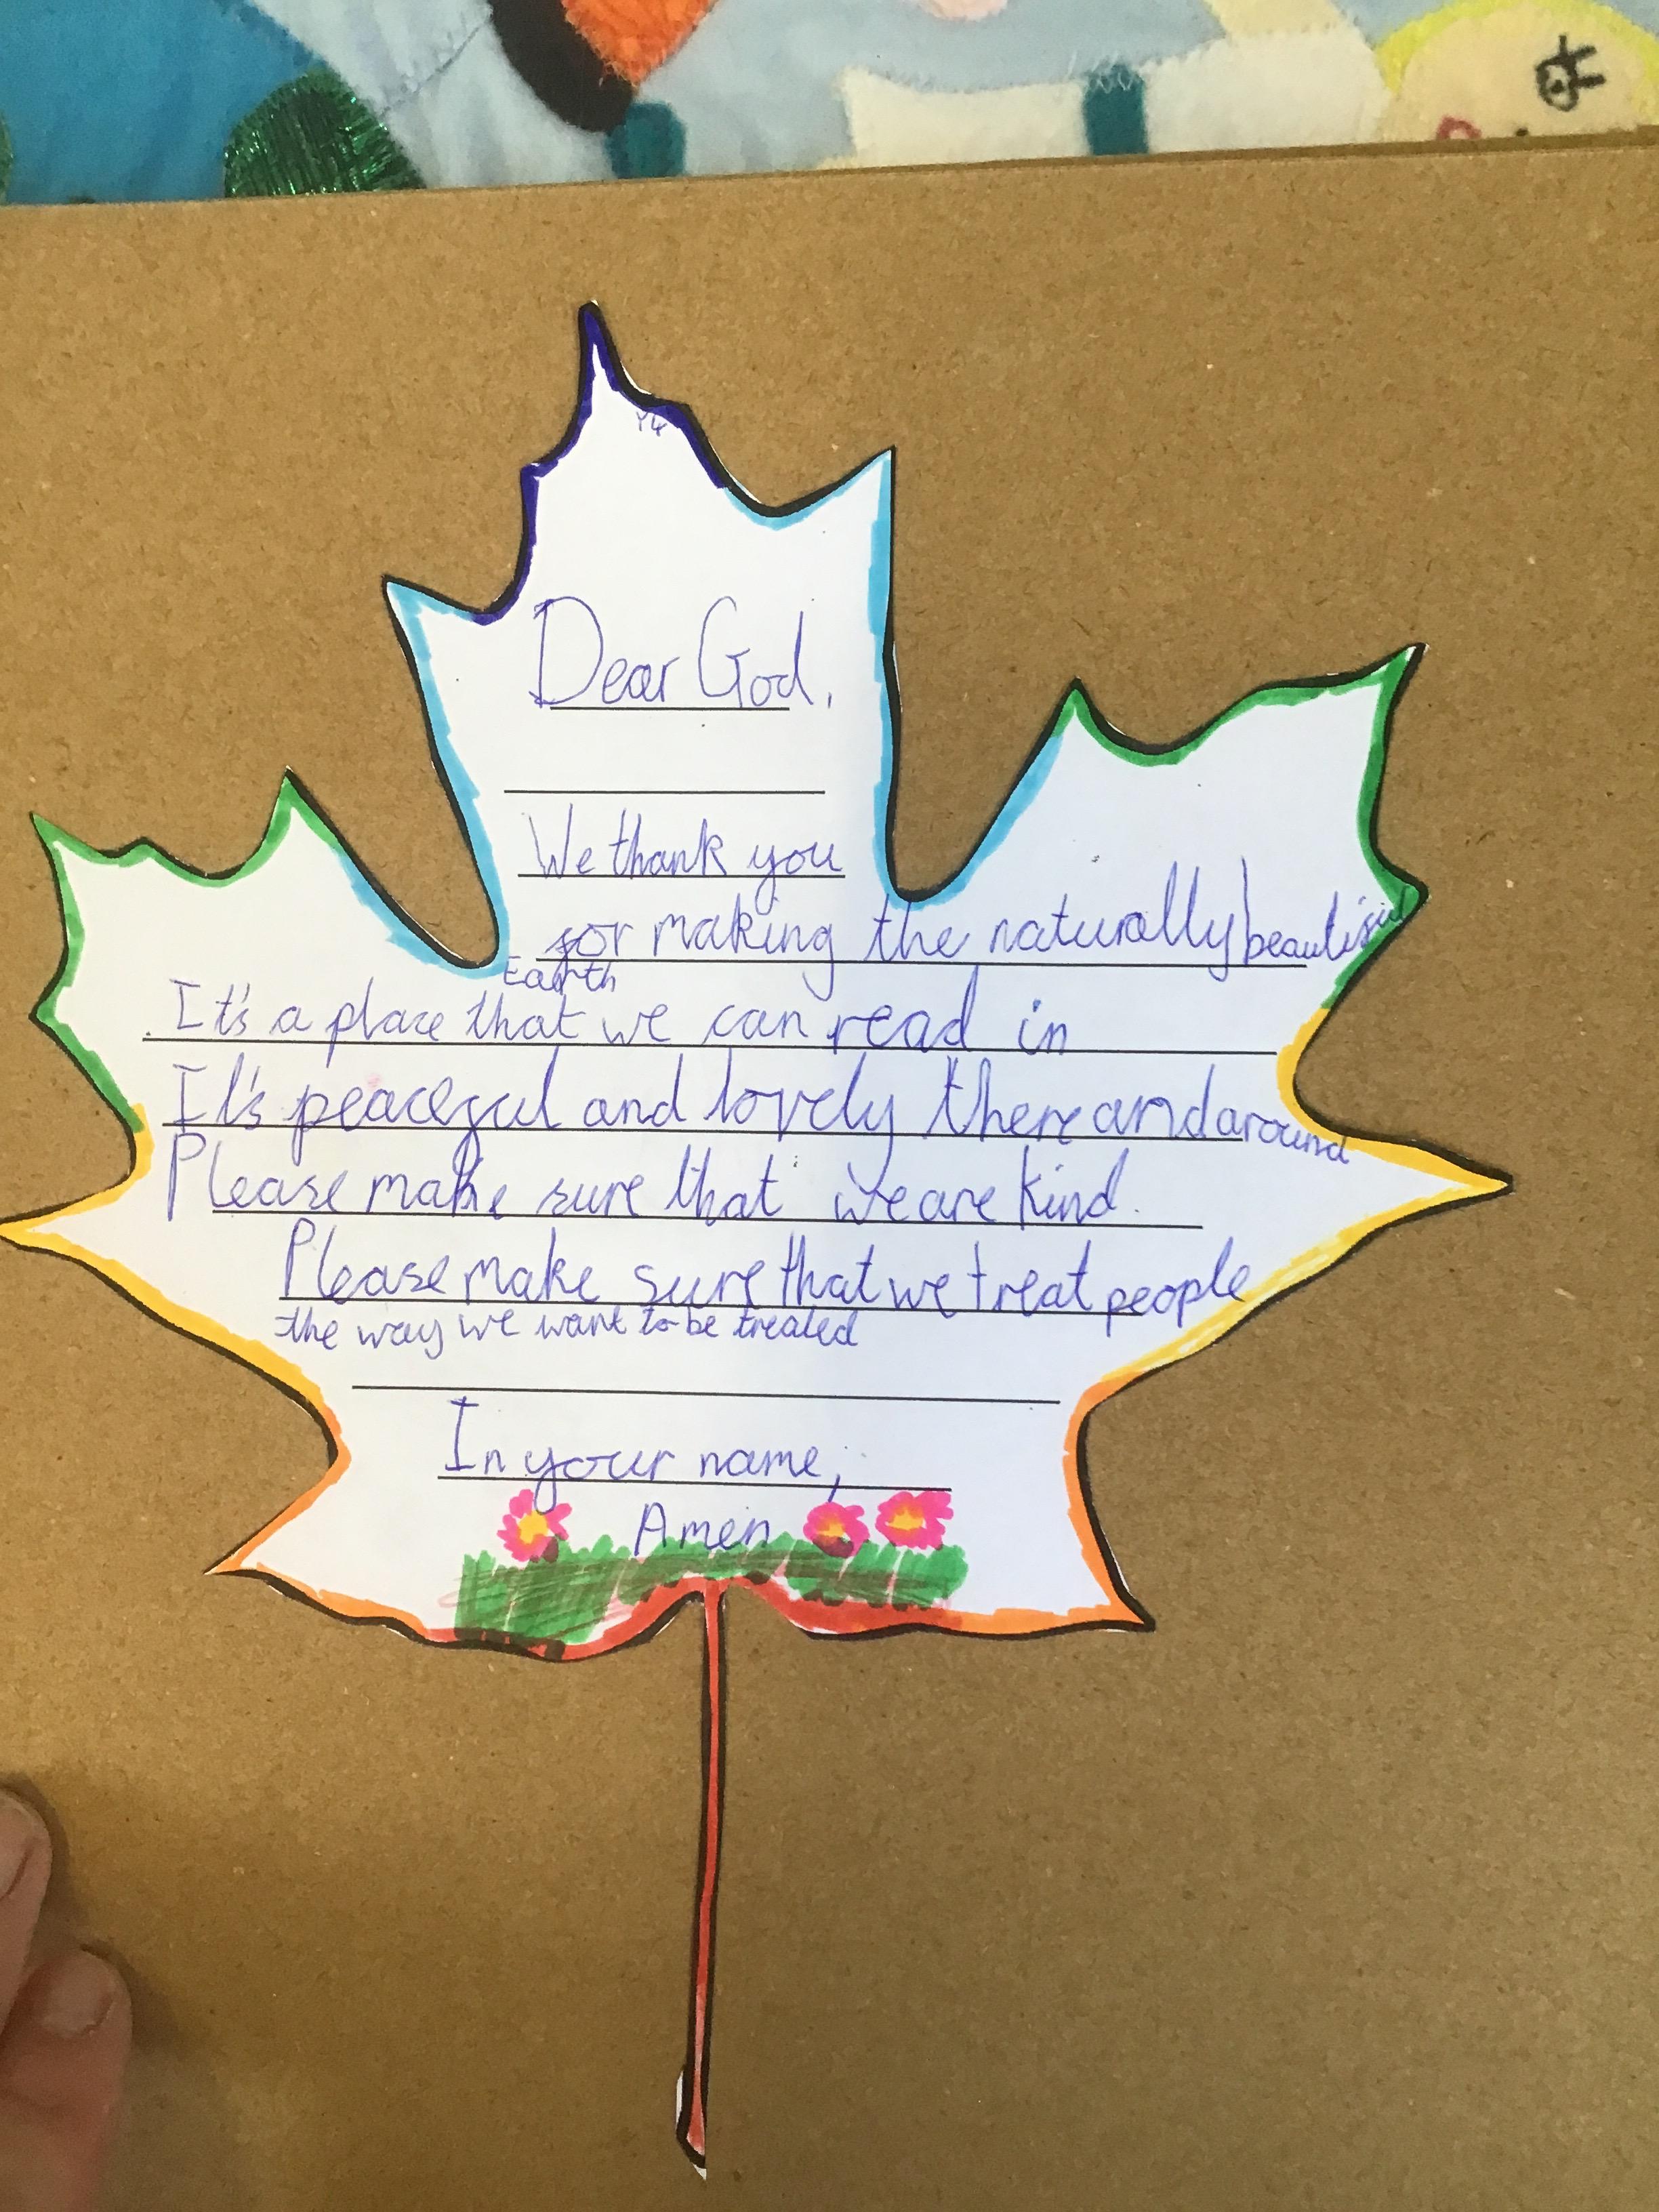 Y4
Dear God,
We thank you
for making the naturally beautiful
Earth
It's a place that we can read in
It's peaceful and lovely there and around
Please make sure that we are kind.
Please make sure that we treat people
the way we want to be treated
In your name,
Amen